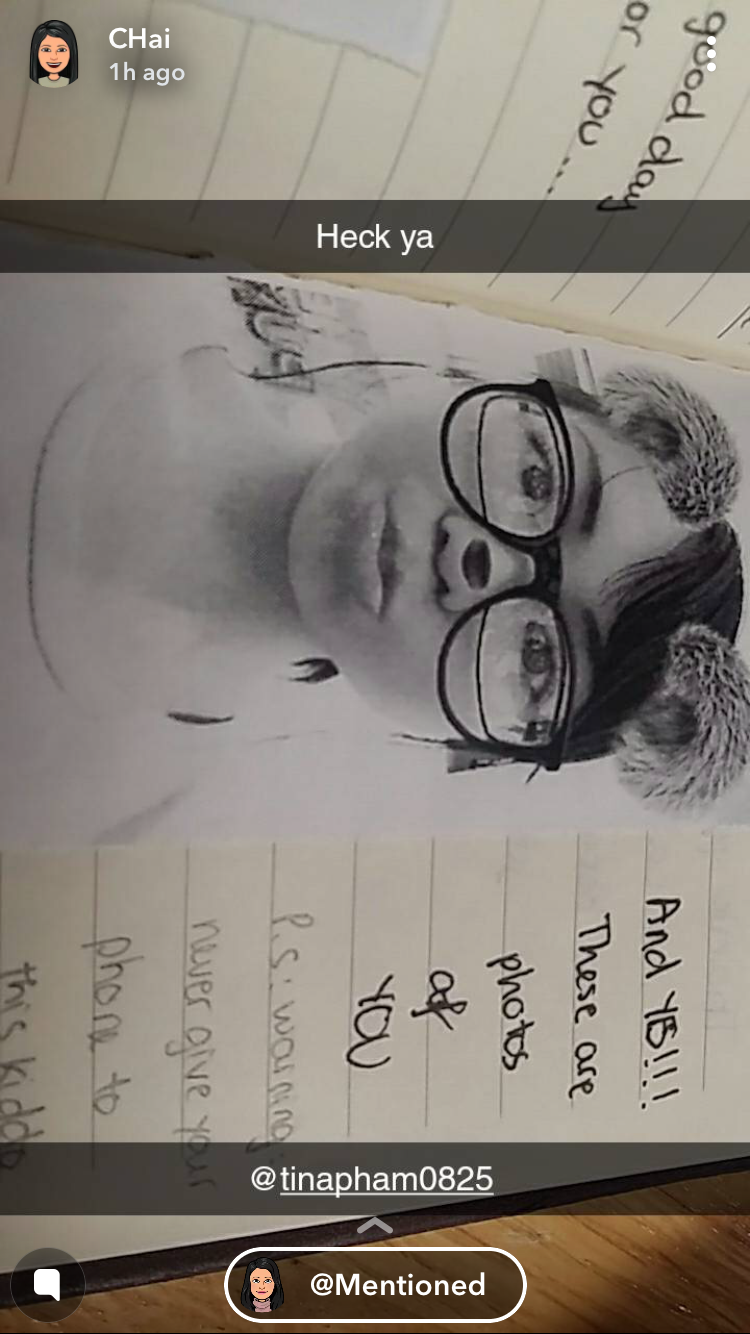 CHai
1h ago
good day
or you...
Heck ya
And YES!!!
These are
photos
of
YOU
P.S: warning
never give your
phone to
this kiddo
@tinapham0825
@Mentioned